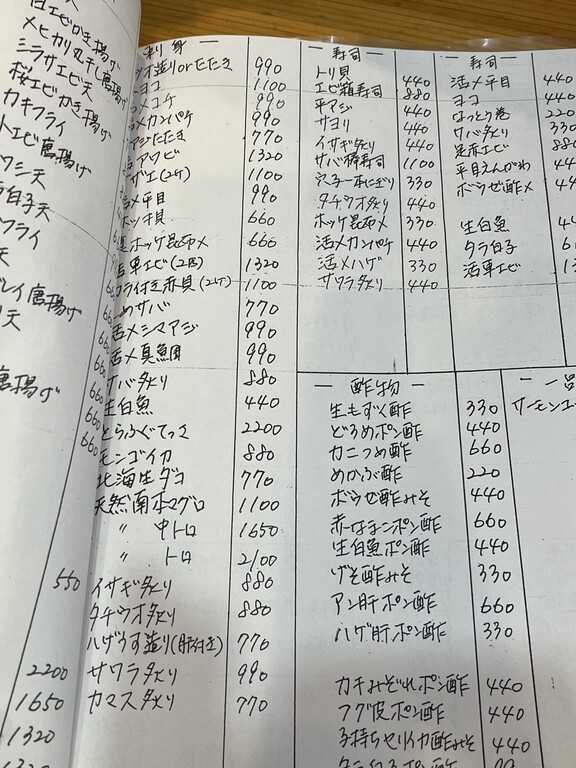 かき揚げ
メヒカリ丸干し唐揚げ
シラサエビ天
桜エビかき揚げ
カキフライ
トエビ唐揚げ
ワシ天
白子天
フライ
天
レイ唐揚げ
天
唐揚げ
660
660
660
660
660
550
2200
1650
1320
1320
刺身
ツオ造りorたたき 990
ヨコ 1100
メコチ 990
メカンパチ 990
アジたたき 770
活アワビ 1320
ザエ(2ケ) 1100
活〆平目 990
ホッキ貝 660
ホッケ昆布〆 660
活車エビ(2匹) 1320
ワタ付き赤貝(2ケ) 1100
〆サバ 770
活〆シマアジ 990
活〆真鯛 990
サバ炙り 880
生白魚 440
とらふぐてっさ 2200
モンゴイカ 880
北海生ダコ 770
天然南本マグロ 1100
〃 中トロ 1650
〃 トロ 2100
イサギ炙り 880
タチウオ炙り 880
ハゲうす造り(肝付き) 770
サワラ炙り 990
カマス炙り 770
寿司
トリ貝 440
エビ箱寿司 880
平アジ 440
サヨリ 440
イサギ炙り 440
サバ棒寿司 1100
穴子一本にぎり 330
タチウオ炙り 440
ホッケ昆布〆 330
活〆カンパチ 440
活〆ハゲ 330
サワラ炙り 440
寿司
活〆平目 440
ヨコ 440
なっとう巻 220
サバ炙り 330
足赤エビ 880
平目えんがわ 440
ボウゼ酢〆 440
生白魚
タラ白子
活車エビ
酢物
生もずく酢 330
どろめポン酢 440
カニつめ酢 660
めかぶ酢 220
ボウゼ酢みそ 440
赤なまこポン酢 660
生白魚ポン酢 440
げそ酢みそ 330
アン肝ポン酢 660
ハゲ肝ポン酢 330
カキみぞれポン酢 440
フグ皮ポン酢 440
子持ちヤリイカ酢みそ 440
一品
サーモンユ